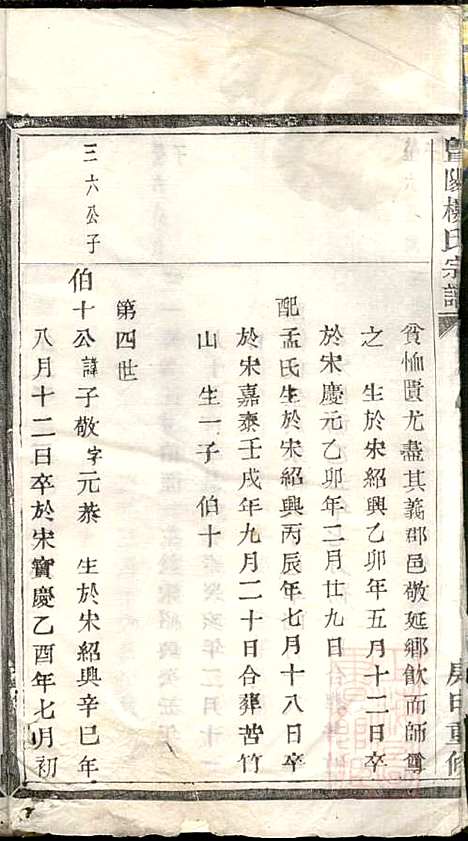 暨陽樓氏宗譜
庚申重修
貧恤匱尤盡其義郡邑敬延鄉飲而師尊
之　生於宋紹興乙卯年五月十二日卒
於宋慶元乙卯年二月廿九日
配孟氏生於宋紹興丙辰年七月十八日卒
於宋嘉泰壬戌年九月二十日合葬苦竹
山　生一子　伯十
第四世
三六公子
伯十公諱子敬字元恭　生於宋紹興辛巳年
八月十二日卒於宋寶慶乙酉年七月初